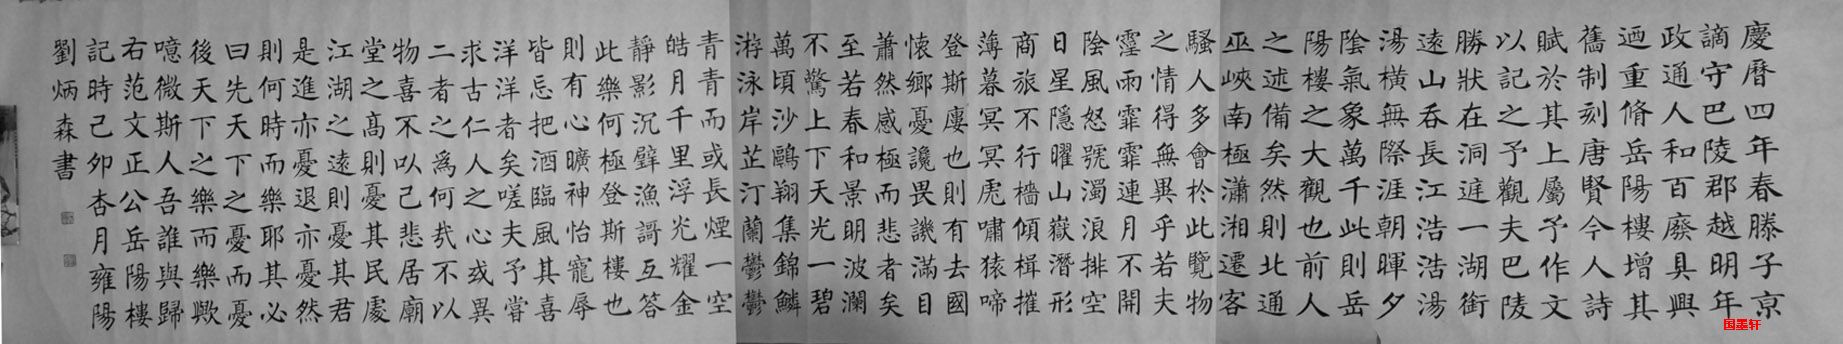 慶曆四年春滕子京
謫守巴陵郡越明年
政通人和百廢具興
迺重脩岳陽樓增其
舊制刻唐賢今人詩
賦於其上屬予作文
以記之予觀夫巴陵
勝狀在洞庭一湖銜
遠山吞長江浩浩湯
湯橫無際涯朝暉夕
陰氣象萬千此則岳
陽樓之大觀也前人
之述備矣然則北通
巫峽南極瀟湘遷客
騷人多會於此覽物
之情得無異乎若夫
霪雨霏霏連月不開
陰風怒號濁浪排空
日星隱曜山嶽潛形
商旅不行檣傾楫摧
薄暮冥冥虎嘯猿啼
登斯廔也則有去國
懷鄉憂讒畏譏滿目
蕭然感極而悲者矣
至若春和景明波瀾
不驚上下天光一碧
萬頃沙鷗翔集錦鱗
游泳岸芷汀蘭鬱鬱
青青而或長煙一空
皓月千里浮光耀金
靜影沉璧漁謌互答
此樂何極登斯樓也
則有心曠神怡寵辱
皆忘把酒臨風其喜
洋洋者矣嗟夫予嘗
求古仁人之心或異
二者之為何哉不以
物喜不以己悲居廟
堂之高則憂其民處
江湖之遠則憂其君
是進亦憂退亦憂然
則何時而樂耶其必
曰先天下之憂而憂
後天下之樂而樂歟
噫微斯人吾誰與歸
右范文正公岳陽樓
記時己卯杏月雍陽
劉炳森書
国墨轩